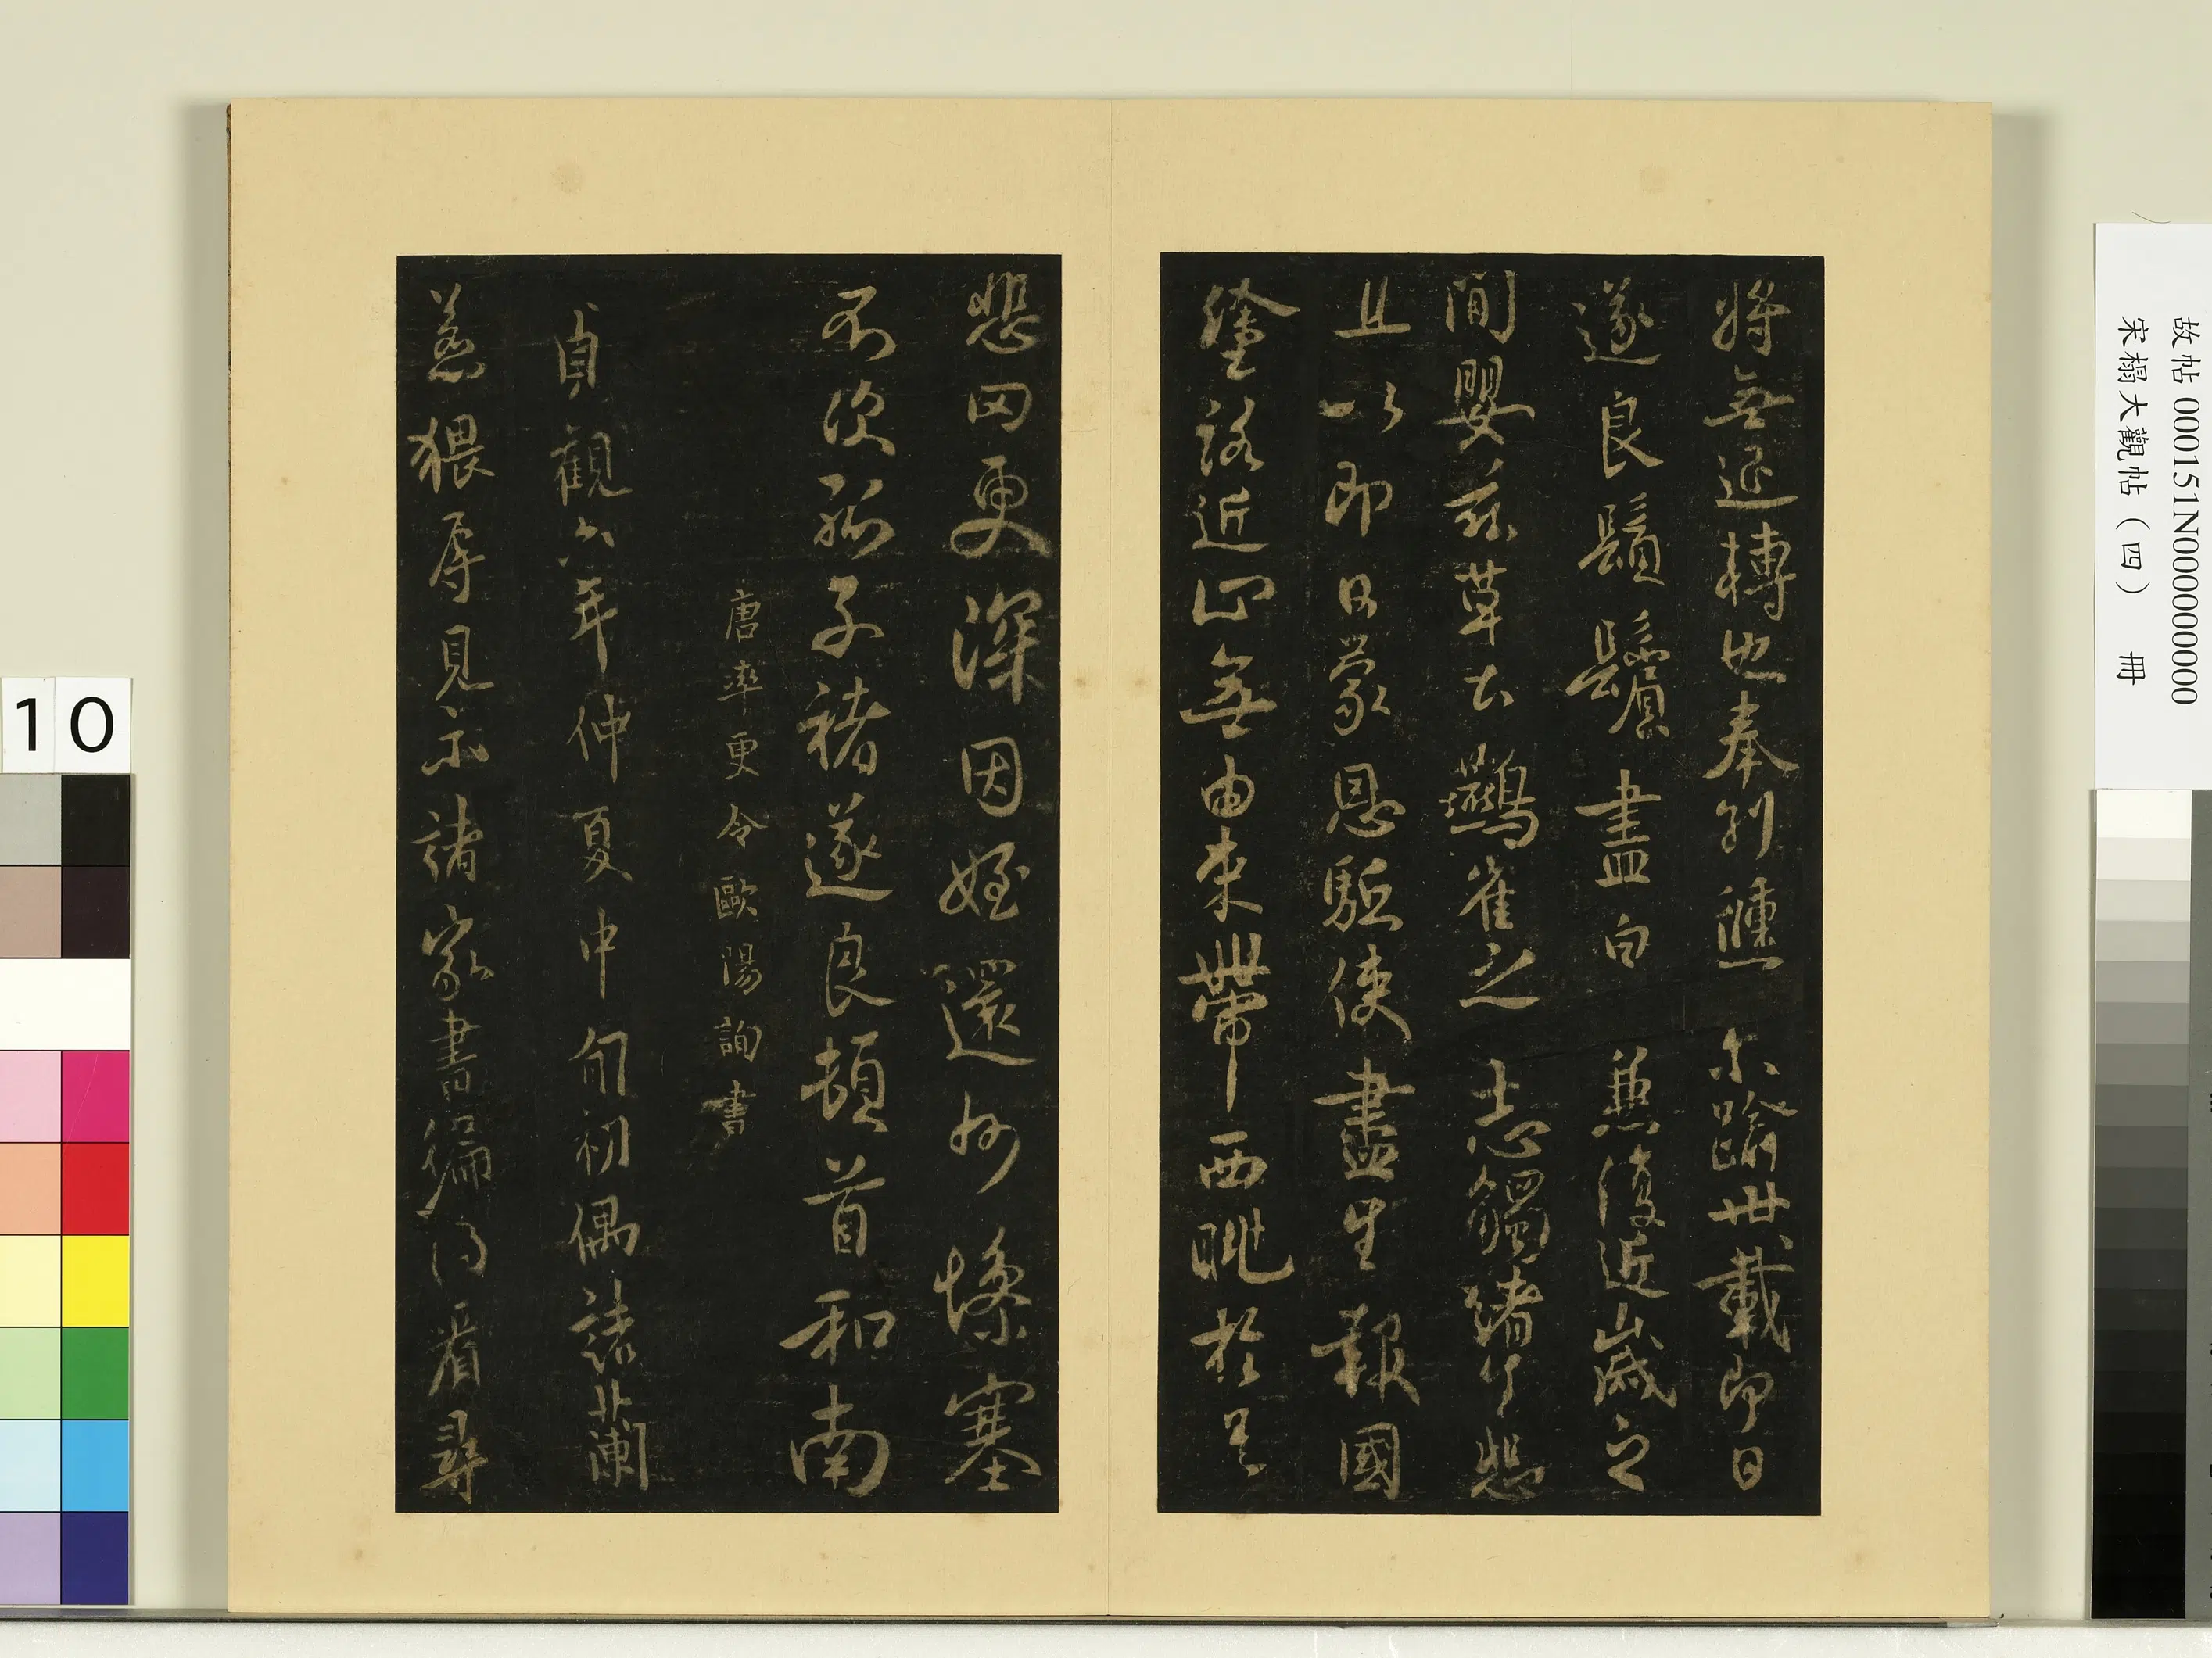 將無退轉也奉別儵尓踰卅載即日
遂良鬚鬢盡白兼復近歲之
間嬰茲草土鷰雀之志觸緒生悲
且以即日蒙恩駈使盡生報國
塗路近止無由束帶西眺於邑
悲罔更深因姪還州慘塞
不次孤子褚遂良頓首和南
唐率更令歐陽詢書
貞觀六年仲夏中旬初偶諸蘭
慈猥辱見示諸家書徧得看尋
故帖 000151N000000000
宋榻大觀帖（四） 冊
10